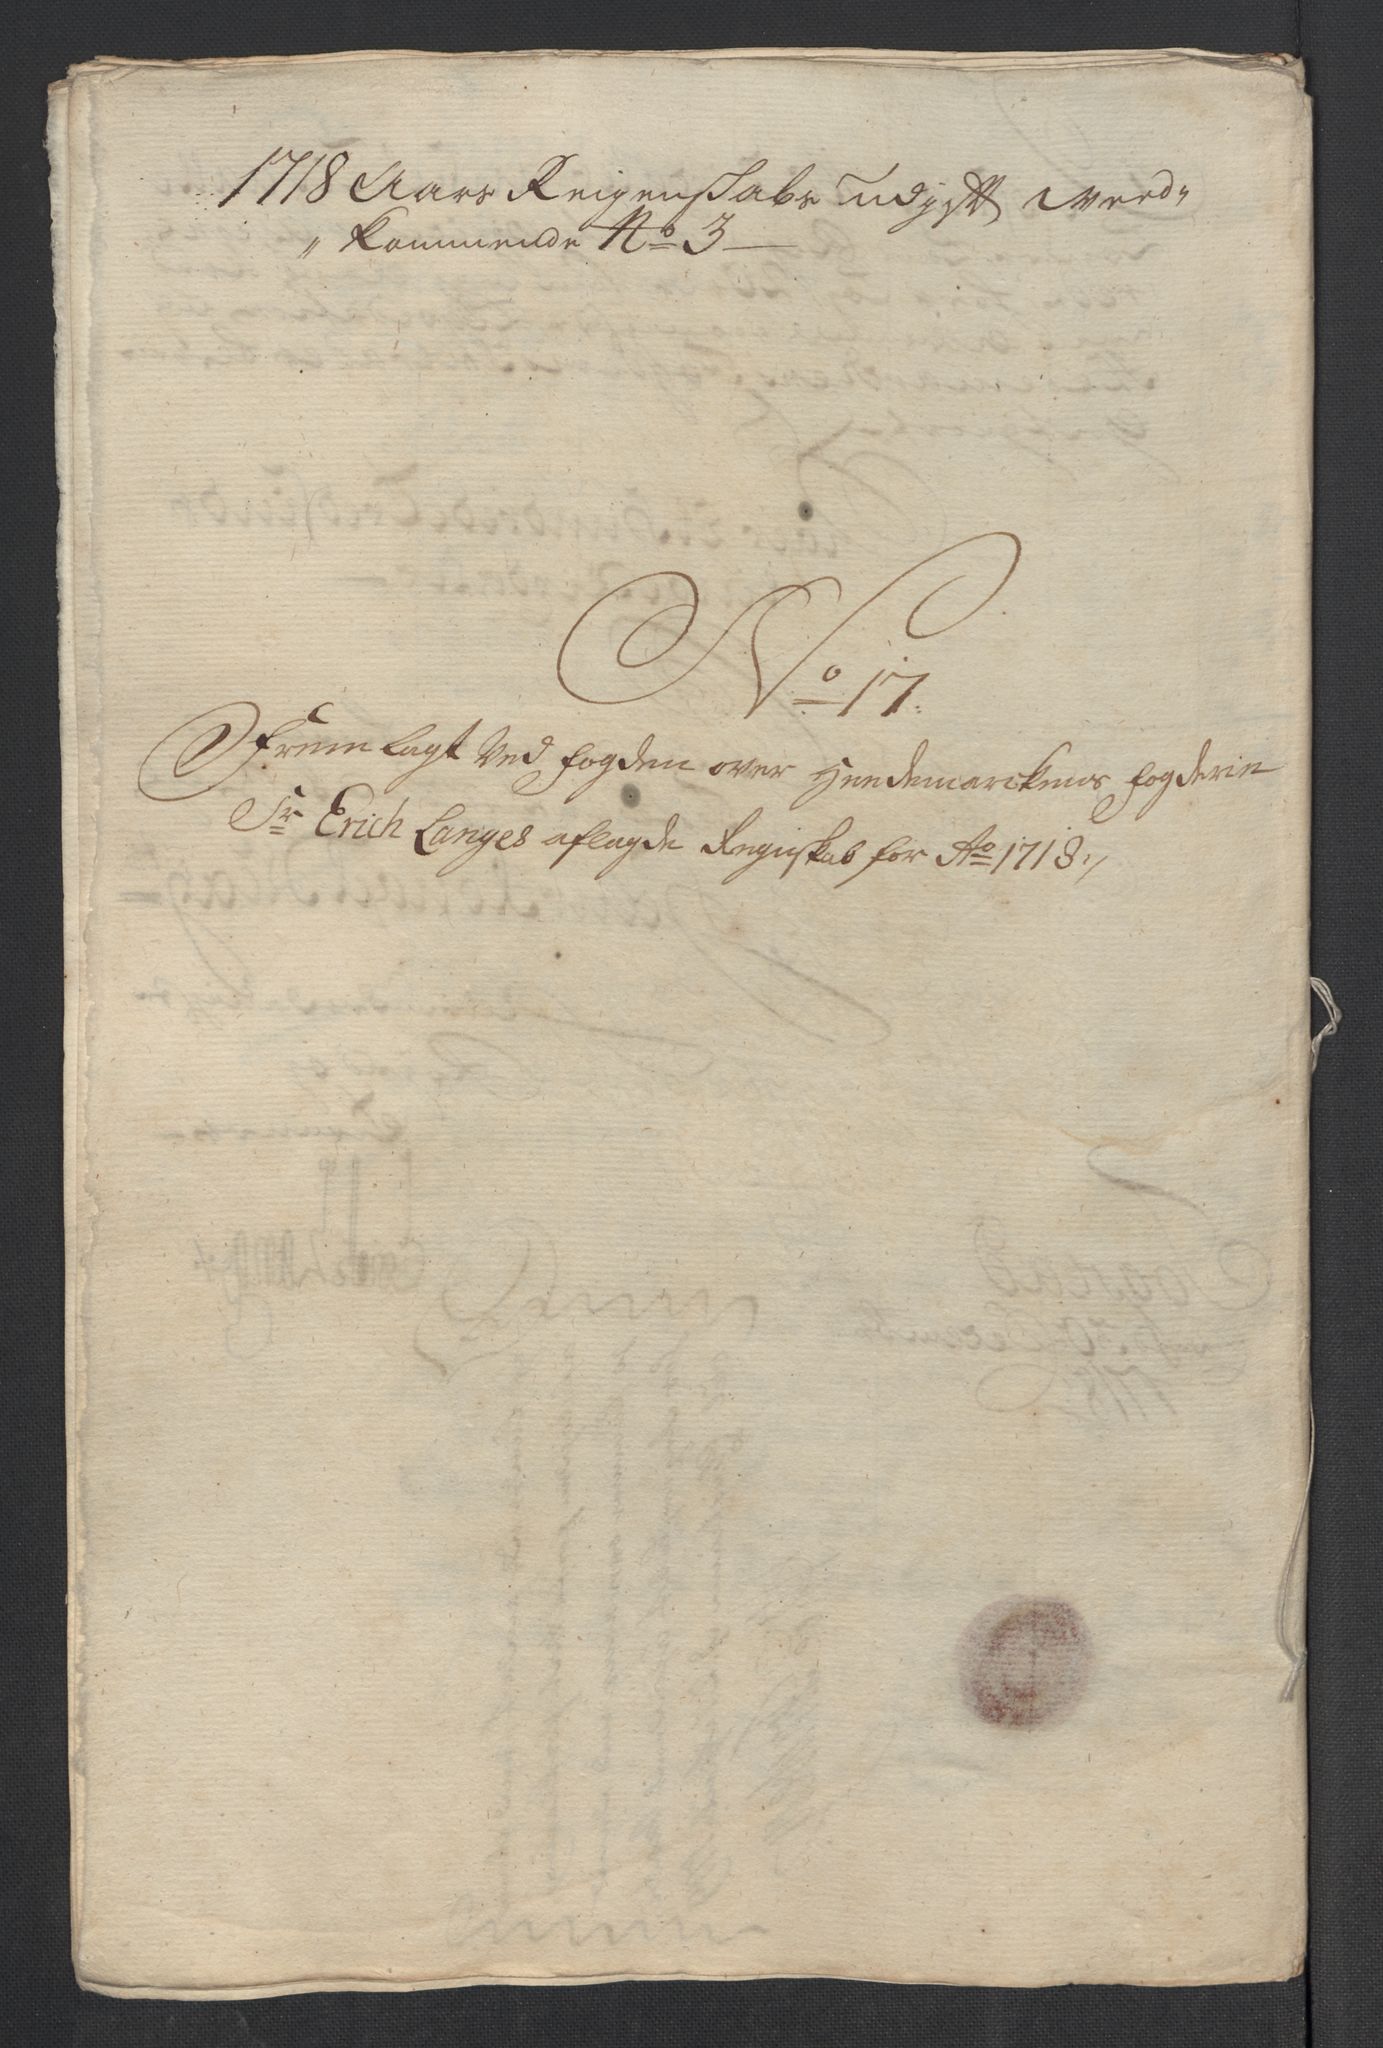 1718 Aars Reigenskabs udgift Ved„
„kommende No 3
No 17.
Frem lagt Ved fogden over Heedemarckens fogderie
Sr Erich Langes aflagde Regnskab for Ao 1718